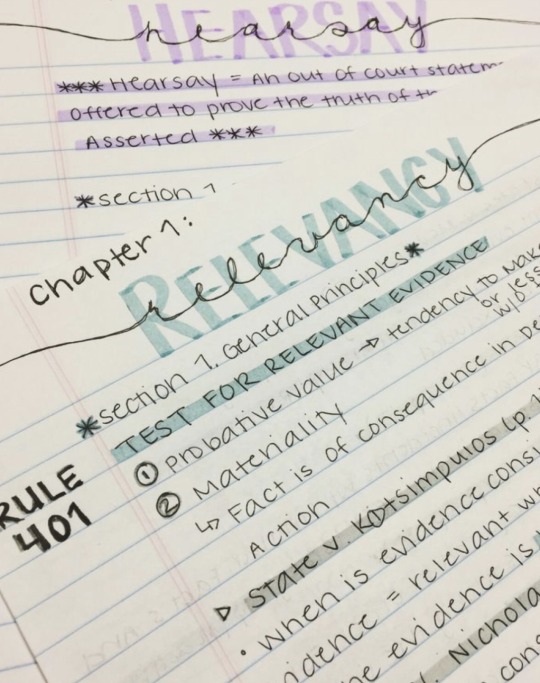 HEARSAY
hearsay
*** Hearsay = An out of court
offered to prove the truth of
Asserted ***
*section 1
chapter 1:
RELEVANCY
relevancy
*section 1. General Principles*
TEST FOR RELEVANT EVIDENCE
RULE 401
① Probative value → tendency to make
or less
w/o
② Materiality
↳ Fact is of consequence in
Action
▷ State v. Kotsimpulos (p.
• when is evidence
= relevant
evidence is
Nichola